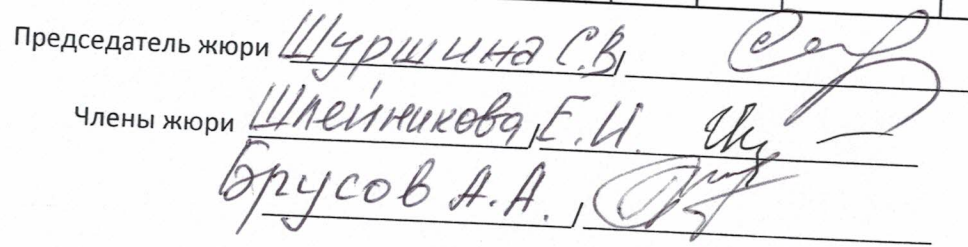 Председатель жюри Шуршина С.В. /
Члены жюри Шлейникова, Е.И.
Брусов А.А. /